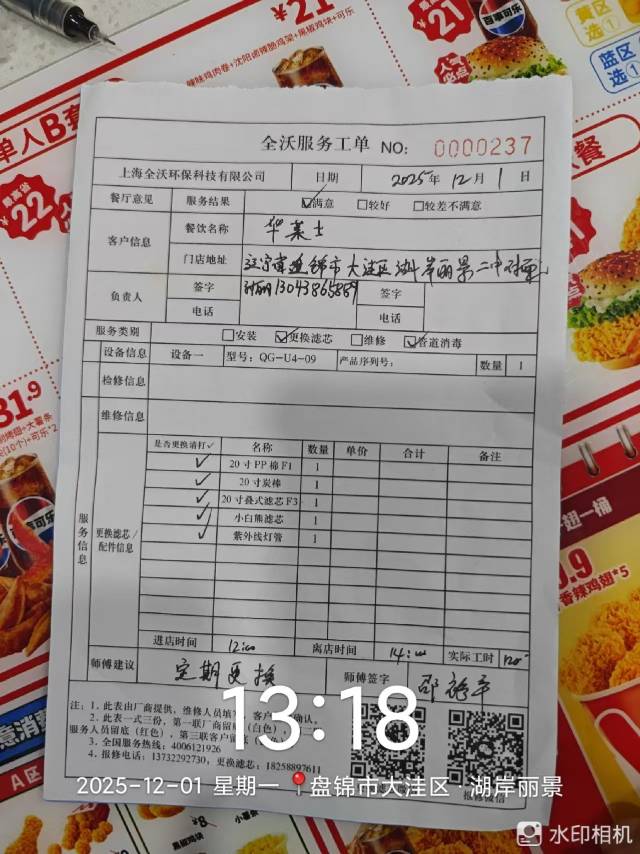 21
辣味鸡肉卷+沈阳卤辣肠鸡架+黑椒鸡块+可乐
21
百事可乐
黄区
选①
蓝区
选①
单人B套
22
31.9
全沃服务工单 NO: 0000237
上海全沃环保科技有限公司 日期 2025年 12月 1日
餐厅意见 服务结果 ☑满意 □较好 □较差不满意
客户信息 餐饮名称 华莱士
门店地址 辽宁省盘锦市大洼区湖岸丽景二中对面
负责人 签字 13043865889 签字
电话 电话
服务类别 □安装 ☑更换滤芯 □维修 ☑管道消毒
设备信息 设备一 型号: QG-U4-09 产品序列号: 数量 1
检修信息
维修信息
服务信息
更换滤芯/配件信息
是否更换请打✓ 名称 数量 单价 合计 备注
✓ 20寸PP棉F1 1
✓ 20寸炭棒 1
✓ 20寸叠式滤芯F3 1
✓ 小白熊滤芯 1
✓ 紫外线灯管 1
进店时间 12:00 离店时间 14:00 实际工时 120
师傅建议 定期更换 师傅签字
注: 1, 此表由厂商提供, 维修人员填写, 客户 确认。
2, 此表一式三份, 第一联厂商留 (白色),
服务人员留底 (红色), 第三联客户留
3, 全国服务热线: 4006121926
4, 报修电话: 13732292730, 更换滤芯: 18258897611
报修微信
13:18
2025-12-01 星期一 盘锦市大洼区·湖岸丽景
水印相机
香辣鸡翅*5
A区
黑椒鸡块